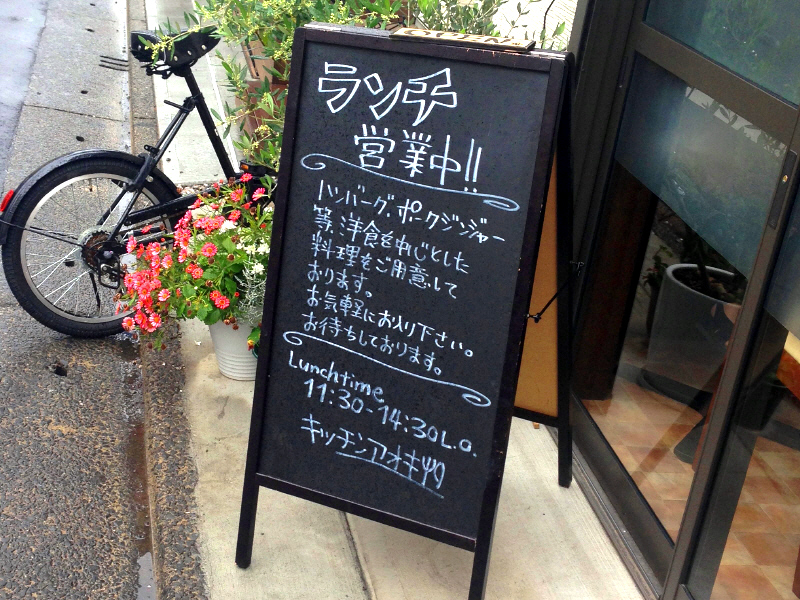 ランチ
営業中!!
ハンバーグ、ポークジンジャー
等、洋食を中心とした
料理をご用意して
おります。
お気軽にお入り下さい。
お待ちしております。
Lunchtime
11:30-14:30 L.O.
キッチンアオキ